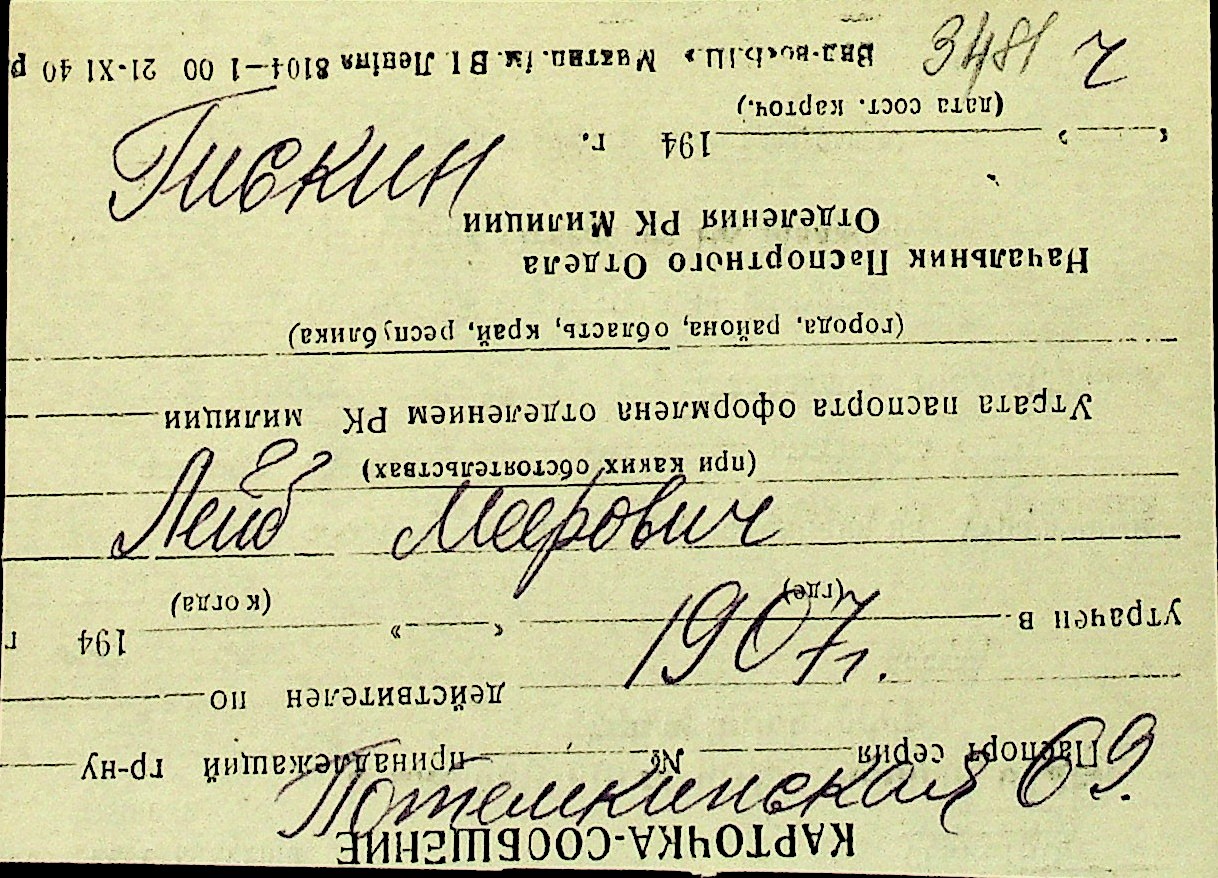 3481 ч
Гискин
Лейб Меерович
1907 г.
Потемкинская 69.
КАРТОЧКА-СООБЩЕНИЕ
Паспорт серия № принадлежащий гр-ну
действителен по
утрачен в « » 194 г
(где) (когда)
(при каких обстоятельствах)
Утрата паспорта оформлена отделением РК милиции
(города, района, область, край, республика)
Начальник Паспортного Отдела
Отделения РК Милиции
« » 194 г.
(дата сост. карточ.)
ім. В І Леніна 8104—1 00 21-XI 40 р